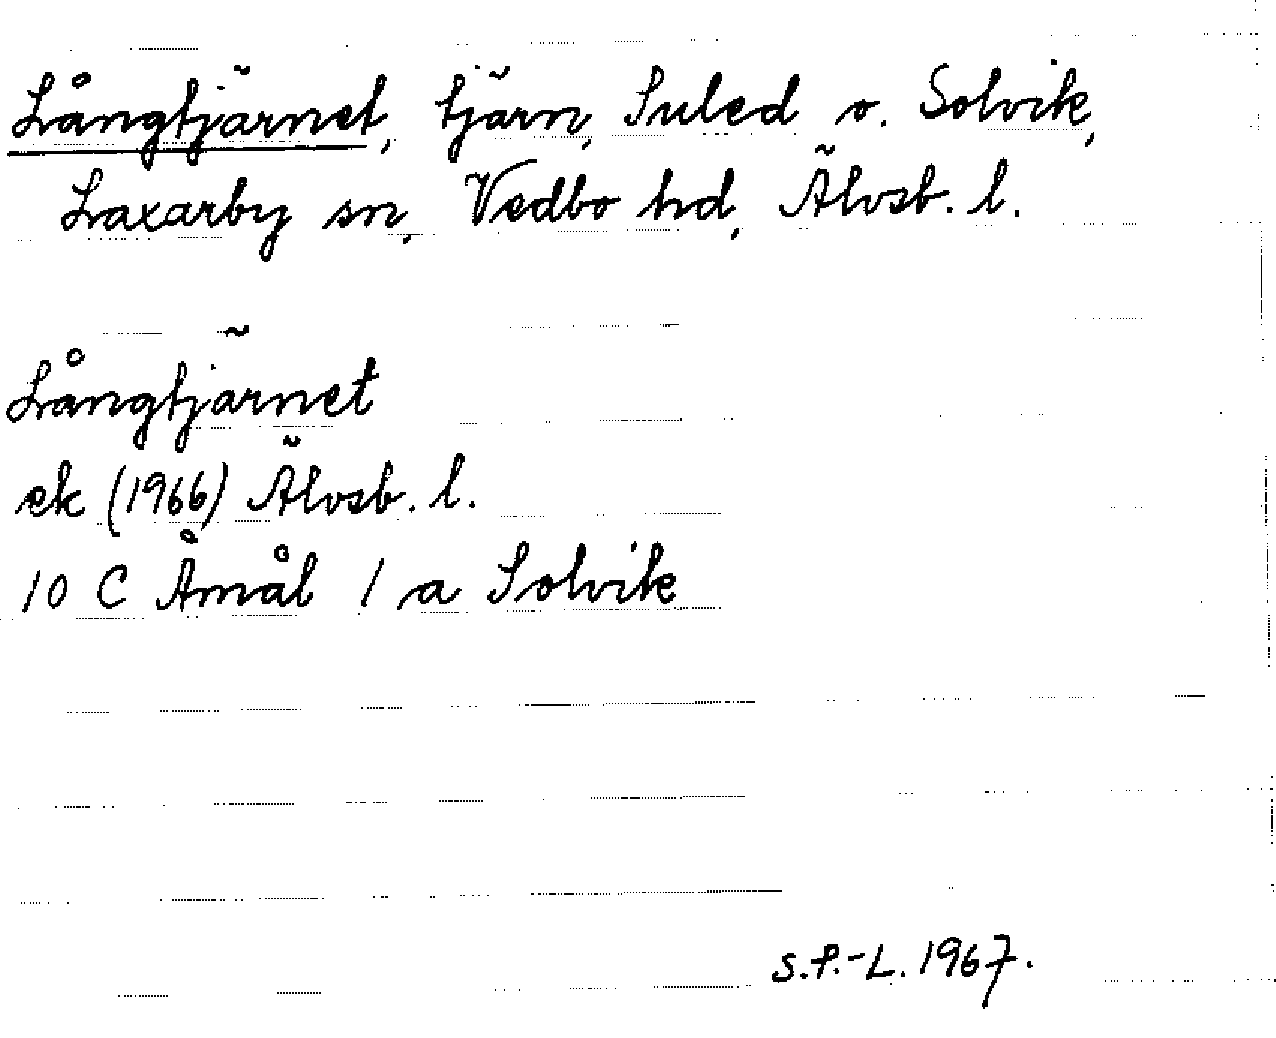 Långtjärnet, tjärn, Suled o. Solvik,
Laxarby sn, Vedbo hd, Älvsb. l.
Långtjärnet
ek (1966) Älvsb. l.
10 C Åmål 1 a Solvik
S.P.-L. 1967.